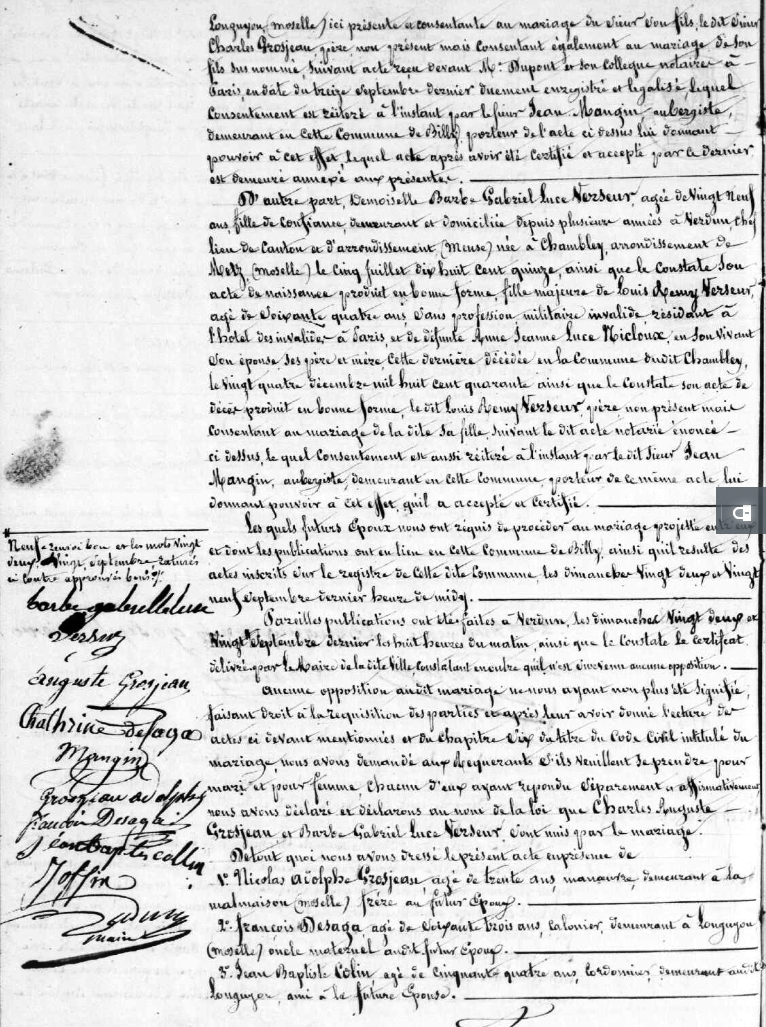 Longuyon, (moselle) ici présente et consentante au mariage du Sieur son fils, le dit Sieur
Charles Grosjean père non présent mais consentant également au mariage de son
fils sus nommé, suivant acte reçu devant Mᵉ. Dupont et son Collegue notaires à
Paris, en date du treize Septembre dernier duement enregistré et legalisé, lequel
Consentement est réitéré à l'instant par le sieur Jean Mangin, aubergiste,
demeurant en Cette Commune de Billy, porteur de l'acte ci dessus lui donnant
pouvoir à cet effet, lequel acte après avoir été Certifié et accepté par ce dernier
est demeuré annexé aux présentes.
D'autre part, Demoiselle Barbe Gabriel Luce Verseur, agée de Vingt Neuf
ans, fille de Confiance, demeurant et domiciliée depuis plusieurs années à Verdun, chef
lieu de Canton et d'arrondissement, (Meuse) née à Chambley, arrondissement de
Metz, (moselle) le Cinq Juillet dix huit Cent quinze, ainsi que le Constate Son
acte de naissance produit en bonne forme, fille majeure de Louis Remy Verseur,
agé de Soixante quatre ans, Sans profession militaire invalide résidant à
l'hotel des invalides à Paris, et de défunte Anne Jeanne Luce Nicloux, en Son Vivant
Son épouse, Ses père et mère, Cette dernière décédée en la Commune dudit Chambley,
le Vingt quatre décembre mil huit Cent quarante ainsi que le Constate son acte de
décès produit en bonne forme, le dit Louis Remy Verseur, père, non présent mais
Consentant au mariage de la dite Sa fille, Suivant le dit acte notarié énoncé
ci dessus, le quel Consentement est aussi réitéré à l'instant par le dit Sieur Jean
Mangin, aubergiste, demeurant en Cette Commune, porteur de le même acte lui
donnant pouvoir à Cet effet, qu'il a accepté et Certifié.
Les quels futurs Epoux nous ont réquis de procéder au mariage projetté entr'eux
et dont les publications ont eu lieu en Cette Commune de Billy, ainsi qu'il resulte des
actes inscrits Sur le registre de Cette dite Commune, les dimanches Vingt deux et Vingt
neuf Septembre dernier heure de midi.
Pareilles publications ont été faites à Verdun, les dimanches Vingt deux et
Vingt Septembre dernier les huit heures du matin, ainsi que le Constate le Certificat
délivré par le Maire de la dite Ville, Constatant en outre qu'il n'est Survenue aucune opposition.
Aucune opposition audit mariage ne nous ayant non plus été Signifié,
faisant droit à la requisition des parties et après leur avoir donné lecture des
actes ci devant mentionnés et du Chapitre Six du titre du Code Civil intitulé du
mariage, nous avons demandé aux Requerants S'ils Veuillent Se prendre pour
mari et pour femme, Chacun d'eux ayant repondu Séparement et affirmativement
nous avons déclaré et déclarons au nom de la loi que Charles Auguste
Grosjean et Barbe Gabriel Luce Verseur Sont unis par le mariage.
De tout quoi nous avons dressé le présent acte en présence de
1º. Nicolas Adolphe Grosjean, agé de trente ans, manœuvre, demeurant à la
malmaison (moselle) frère au futur Epoux.
2º. François Desaga agé de Soixante trois ans, demeurant à Longuyon
(moselle) oncle maternel audit futur Epoux.
3º. Jean Baptiste Colin agé de Cinquante quatre ans, Cordonnier, demeurant audit
Longuyon, ami à la future Epouse.
Neuf renvoi bon et les mots Vingt
deux, Vingt, Septembre raturés
ci contre approuvés bons
barbe gabrielle luce
Verseur
auguste Grosjean
Chathrine desaga
Mangin
Grosjean adolphe
francois Desaga
Jean baptiste collin
Joffin
maire